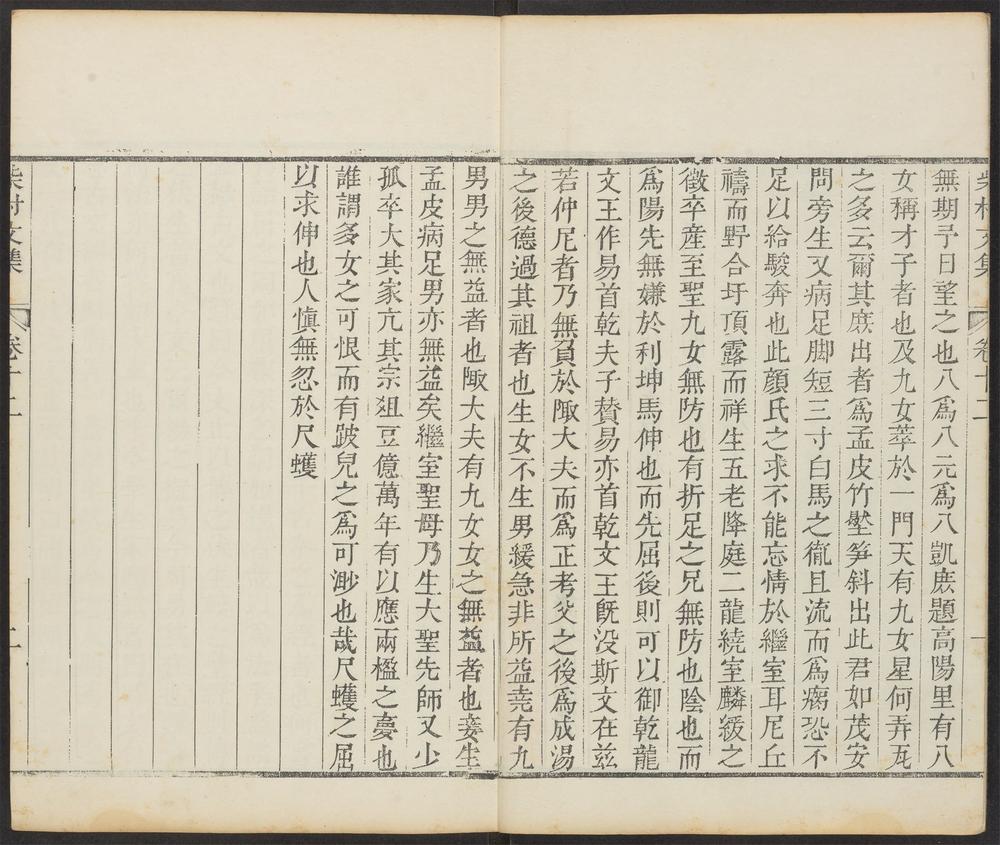 柴村文集
卷十二
無期予日望之也八爲八元爲八凱庶題高陽里有八
女稱才子者也及九女萃於一門天有九女星何弄瓦
之多云爾其庶出者爲孟皮竹壂笋斜出此君如茂安
問旁生又病足脚短三寸白馬之㣫且流而爲瘸恐不
足以給駿奔也此顏氏之求不能忘情於繼室耳尼丘
禱而野合圩頂露而祥生五老降庭二龍繞室麟綬之
徵卒産至聖九女無防也有折足之兄無防也陰也而
爲陽先無嫌於利坤馬伸也而先屈後則可以御乾龍
文王作易首乾夫子贊易亦首乾文王旣没斯文在兹
若仲尼者乃無負於陬大夫而爲正考父之後爲成湯
之後德過其祖者也生女不生男緩急非所益堯有九
男男之無益者也陬大夫有九女女之無益者也妾生
孟皮病足男亦無益矣繼室聖母乃生大聖先師又少
孤卒大其家亢其宗俎豆億萬年有以應兩楹之夢也
誰謂多女之可恨而有跛兒之爲可渺也哉尺蠖之屈
以求伸也人愼無忽於尺蠖
柴村文集
卷十二